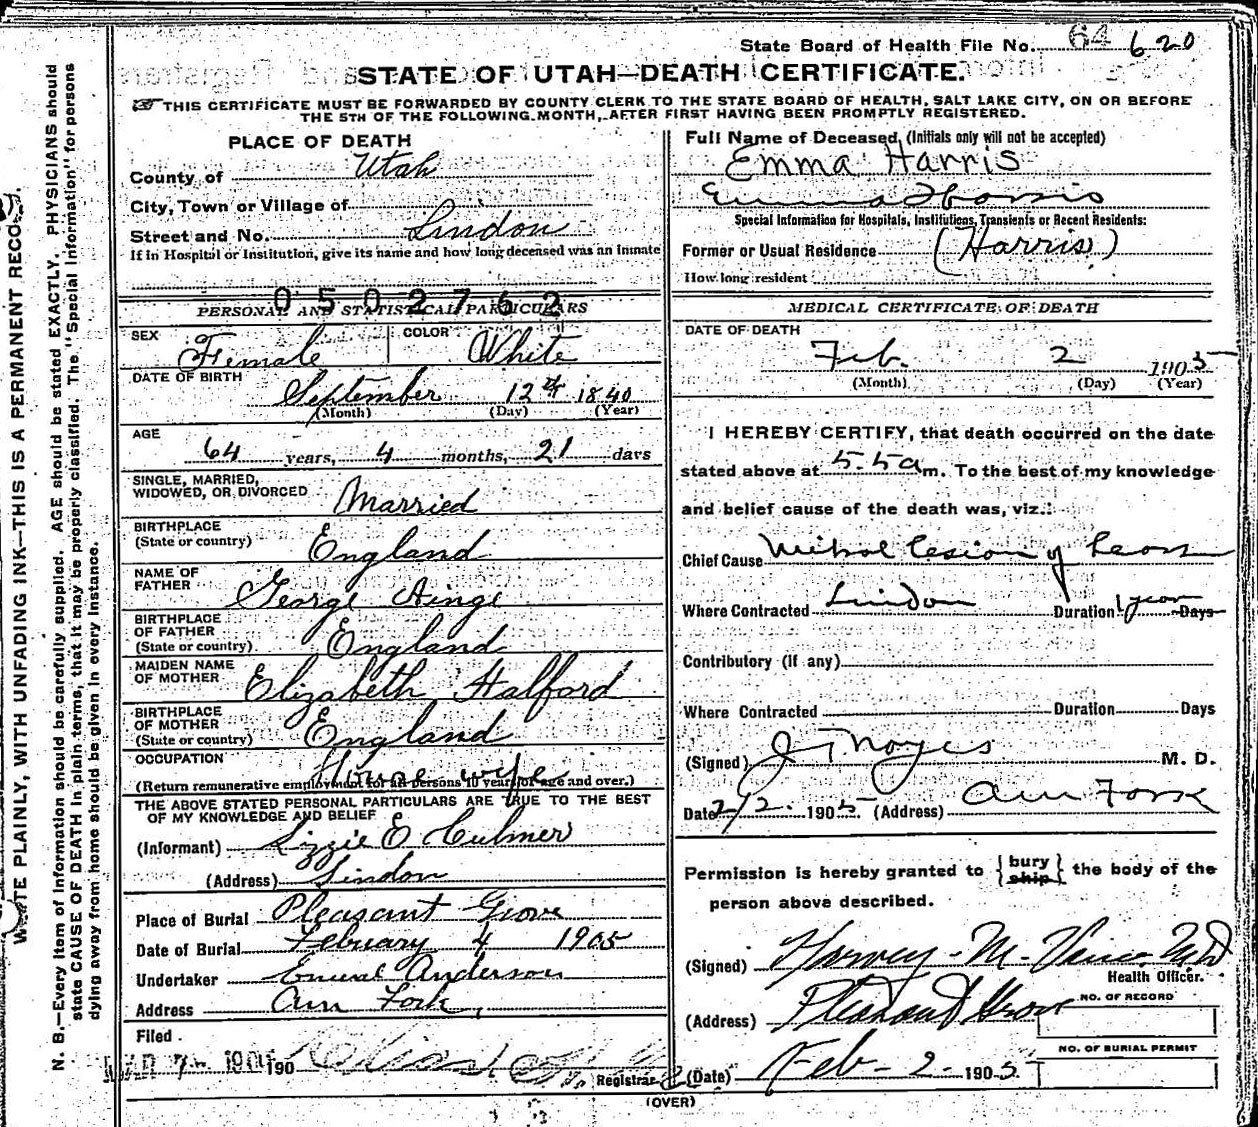 State Board of Health File No. 64 620
STATE OF UTAH—DEATH CERTIFICATE.
THIS CERTIFICATE MUST BE FORWARDED BY COUNTY CLERK TO THE STATE BOARD OF HEALTH, SALT LAKE CITY, ON OR BEFORE
THE 5TH OF THE FOLLOWING MONTH, AFTER FIRST HAVING BEEN PROMPTLY REGISTERED.
WRITE PLAINLY, WITH UNFADING INK—THIS IS A PERMANENT RECORD.
N. B.—Every item of information should be carefully supplied. AGE should be stated EXACTLY. PHYSICIANS should
state CAUSE OF DEATH in plain terms, that it may be properly classified. The "Special Information" for persons
dying away from home should be given in every instance.
PLACE OF DEATH
County of Utah
City, Town or Village of
Street and No. Lindon
If in Hospital or Institution, give its name and how long deceased was an inmate
0502762
PERSONAL AND STATISTICAL PARTICULARS
SEX Female COLOR White
DATE OF BIRTH September 12th 1840
(Month) (Day) (Year)
AGE 64 years, 4 months, 21 days
SINGLE, MARRIED,
WIDOWED, OR DIVORCED Married
BIRTHPLACE
(State or country) England
NAME OF
FATHER George Ainge
BIRTHPLACE
OF FATHER
(State or country) England
MAIDEN NAME
OF MOTHER Elizabeth Halford
BIRTHPLACE
OF MOTHER
(State or country) England
OCCUPATION House wife
(Return remunerative employment for all persons 10 years of age and over.)
THE ABOVE STATED PERSONAL PARTICULARS ARE TRUE TO THE BEST
OF MY KNOWLEDGE AND BELIEF
(Informant) Lizzie E Culmer
(Address) Lindon
Place of Burial Pleasant Grove
Date of Burial February 4 1905
Undertaker Anderson
Address Am Fork,
Filed
MAR 7 190
Registrar
Full Name of Deceased, (Initials only will not be accepted)
Emma Harris
Emma Harris
Special Information for Hospitals, Institutions, Transients or Recent Residents:
Former or Usual Residence (Harris)
How long resident
MEDICAL CERTIFICATE OF DEATH
DATE OF DEATH
Feb. 2 1905
(Month) (Day) (Year)
I HEREBY CERTIFY, that death occurred on the date
stated above at 5.5 a m. To the best of my knowledge
and belief cause of the death was, viz.:
Chief Cause Mitral lesion of heart
Where Contracted Lindon Duration 1 year Days
Contributory (if any)
Where Contracted Duration Days
(Signed) J F Noyes M. D.
Date 2/2 1905. (Address) Am Fork
Permission is hereby granted to {bury ship} the body of the
person above described.
(Signed) Harvey M. MD
Health Officer.
(Address) Pleasant Grove
NO. OF RECORD
NO. OF BURIAL PERMIT
(Date) Feb - 2 - 1905
(OVER)